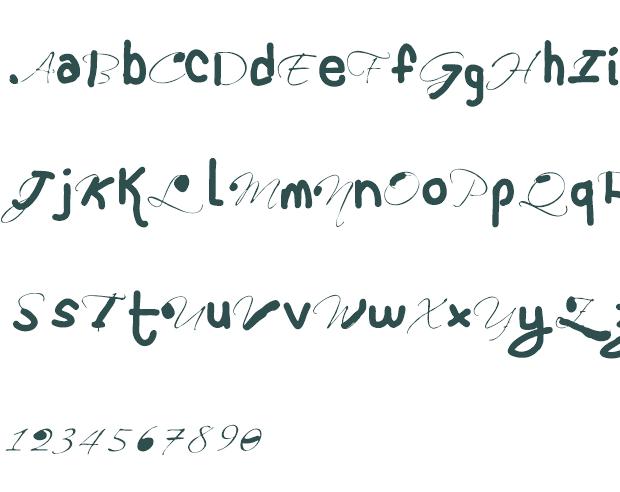 AaBbCcDdEeFfGgHhIi
JjKkLlMmNnOoPpQqR
SsTtUuVvWwXxYyZz
1234567890